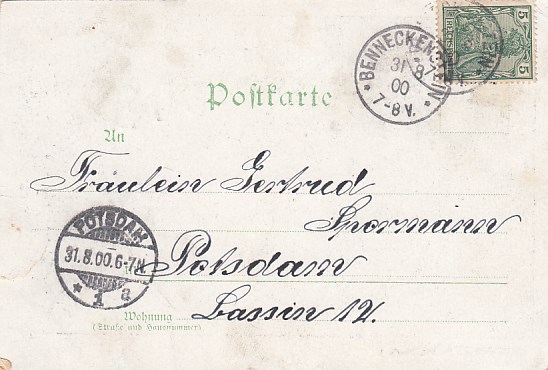 5 5
REICHSPOST
BENNECKENSTEIN
31 8
00
7-8V.
Postkarte
An
Fräulein Gertrud
Spormann
POTSDAM
31.8.00.6-7N
* 1 a
Potsdam
Bassin 12.
Wohnung
(Straße und Hausnummer)